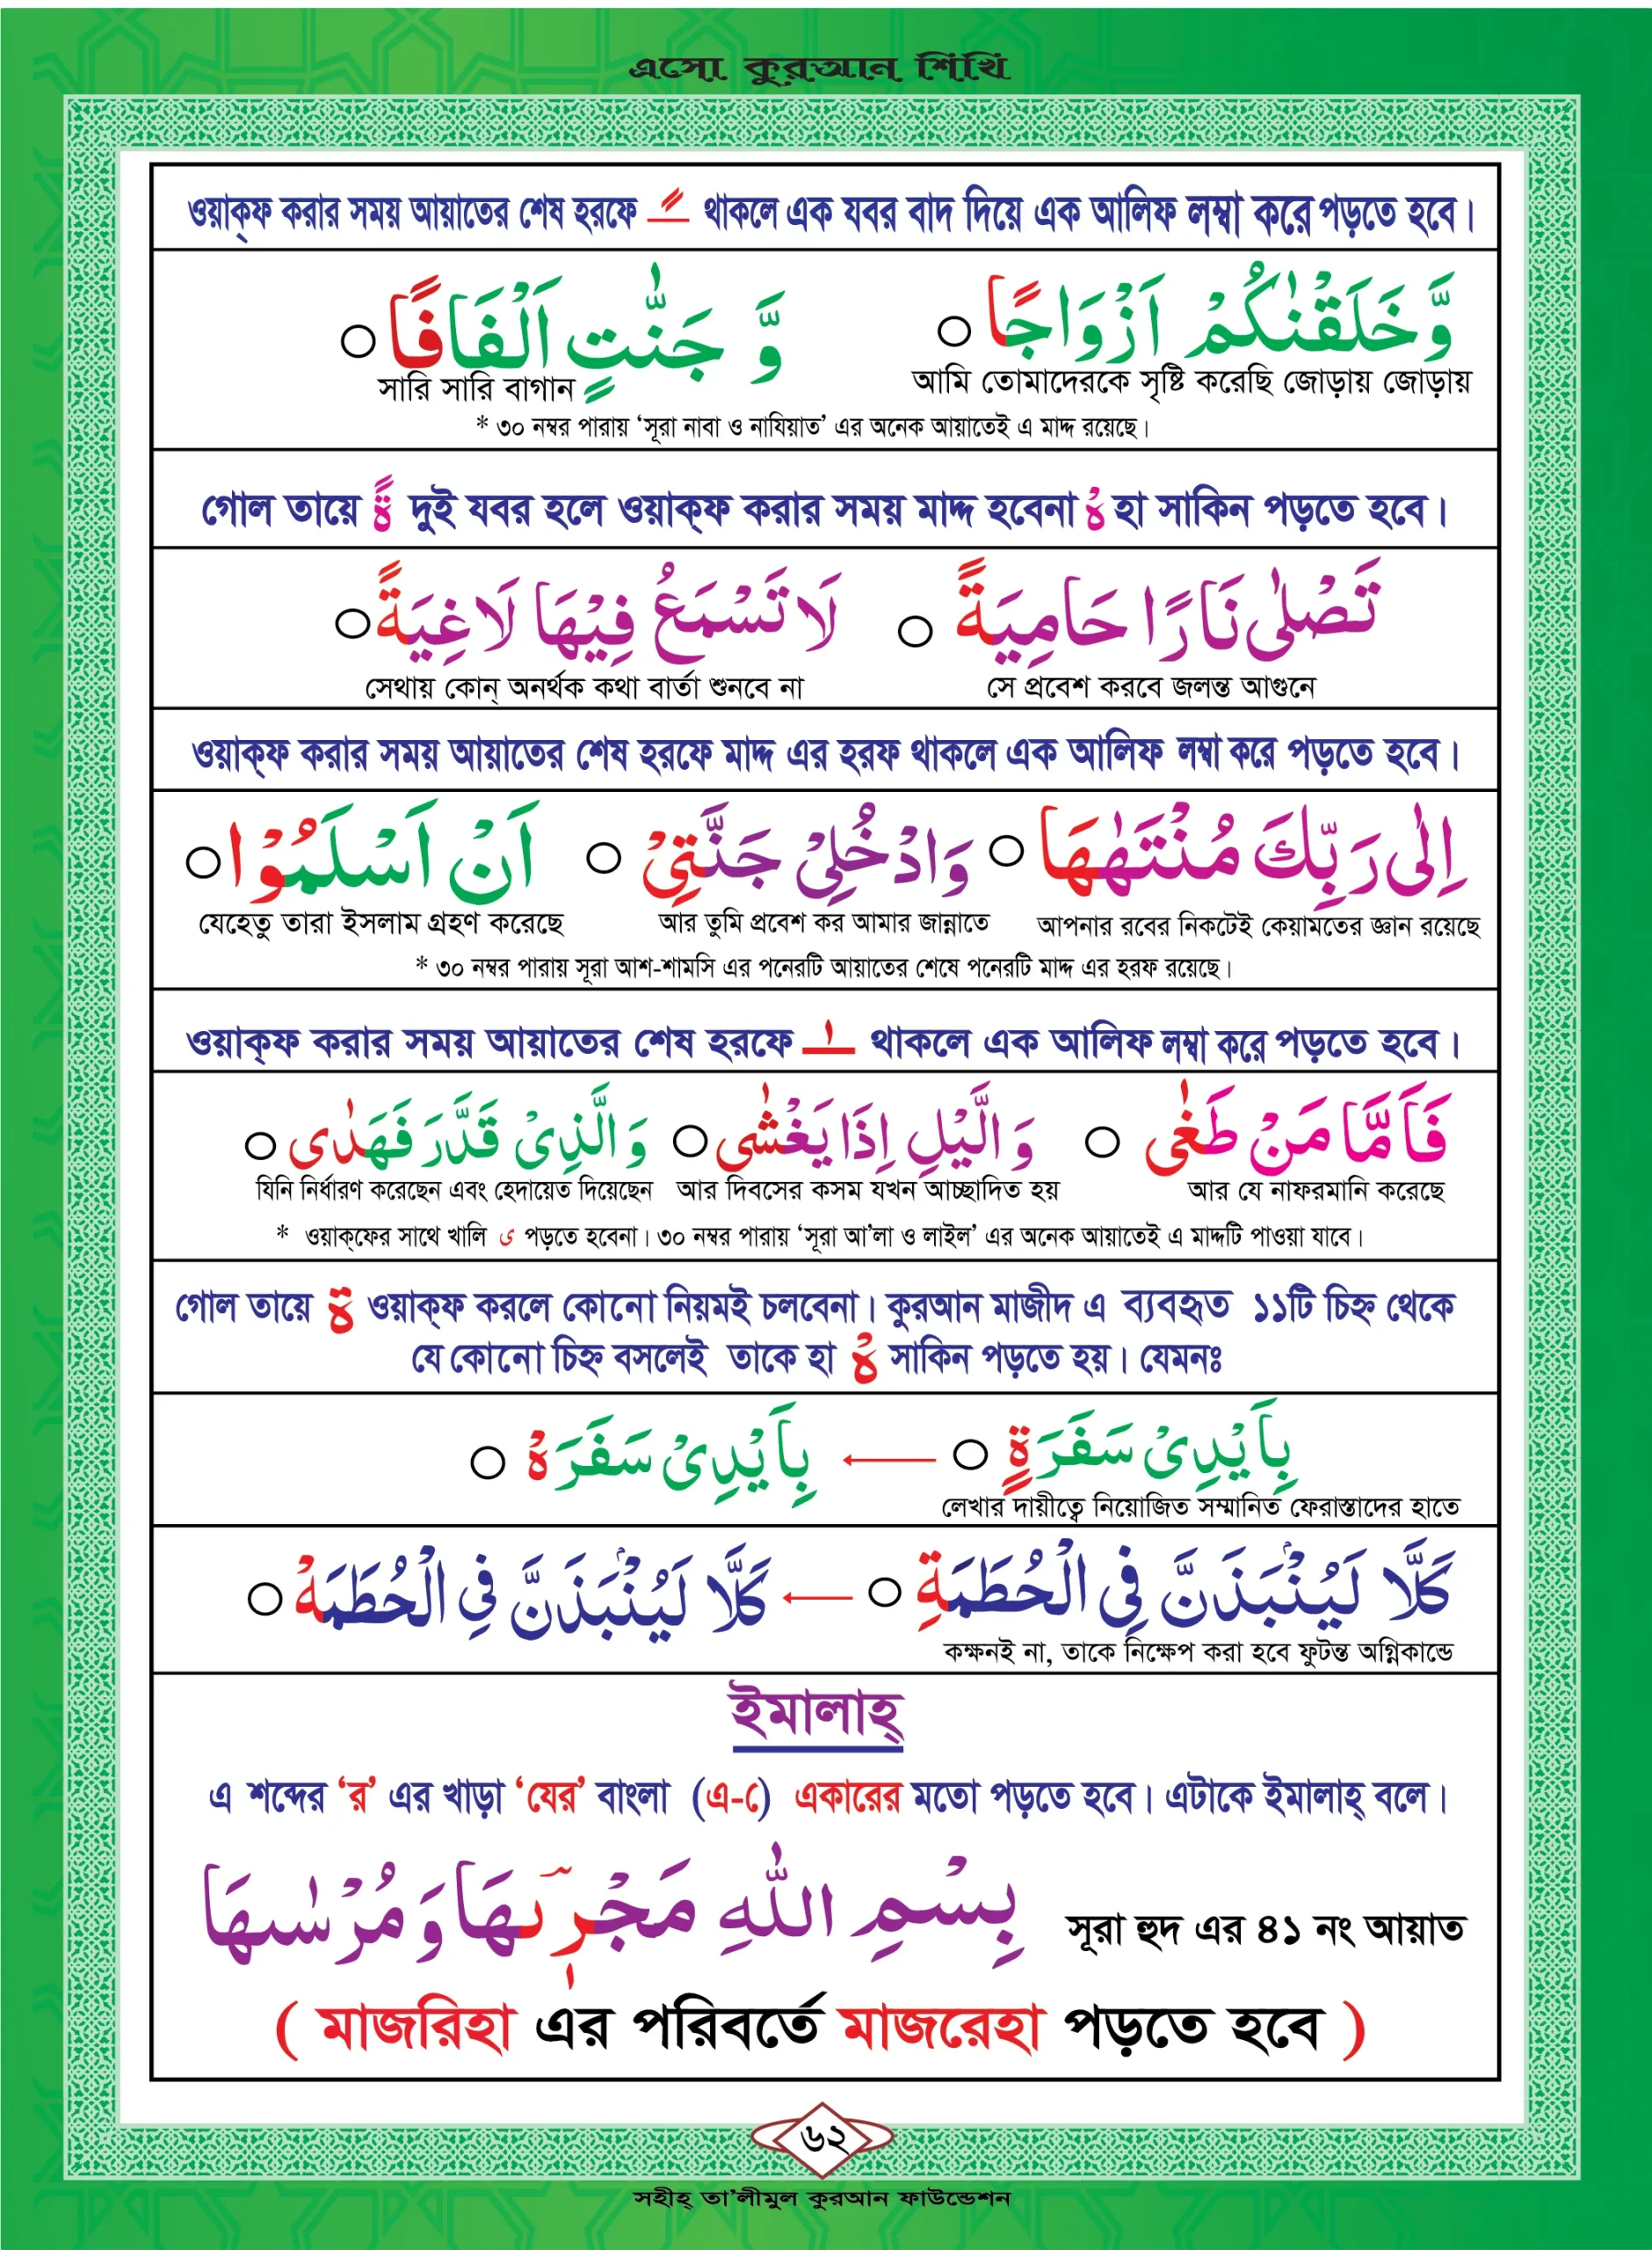 এসো কুরআন শিখি
ওয়াক্ফ করার সময় আয়াতের শেষ হরফে ـً থাকলে এক যবর বাদ দিয়ে এক আলিফ লম্বা করে পড়তে হবে।
وَّخَلَقْنٰكُمْ اَزْوَاجًا ○ وَّ جَنّٰتٍ اَلْفَافًا ○
আমি তোমাদেরকে সৃষ্টি করেছি জোড়ায় জোড়ায় সারি সারি বাগান
* ৩০ নম্বর পারায় ‘সূরা নাবা ও নাযিয়াত’ এর অনেক আয়াতেই এ মাদ্দ রয়েছে।
গোল তায়ে ةً দুই যবর হলে ওয়াক্ফ করার সময় মাদ্দ হবেনা هْ হা সাকিন পড়তে হবে।
تَصْلٰى نَارًا حَامِيَةً ○ لَا تَسْمَعُ فِيْهَا لَاغِيَةً ○
সে প্রবেশ করবে জলন্ত আগুনে সেথায় কোন্ অনর্থক কথা বার্তা শুনবে না
ওয়াক্ফ করার সময় আয়াতের শেষ হরফে মাদ্দ এর হরফ থাকলে এক আলিফ লম্বা করে পড়তে হবে।
اِلٰى رَبِّكَ مُنْتَهٰهَا ○ وَادْخُلِىْ جَنَّتِىْ ○ اَنْ اَسْلَمُوْا ○
আপনার রবের নিকটেই কেয়ামতের জ্ঞান রয়েছে আর তুমি প্রবেশ কর আমার জান্নাতে যেহেতু তারা ইসলাম গ্রহণ করেছে
* ৩০ নম্বর পারায় সূরা আশ-শামসি এর পনেরটি আয়াতের শেষে পনেরটি মাদ্দ এর হরফ রয়েছে।
ওয়াক্ফ করার সময় আয়াতের শেষ হরফে ـٰ থাকলে এক আলিফ লম্বা করে পড়তে হবে।
فَاَمَّا مَنْ طَغٰى ○ وَالَّيْلِ اِذَا يَغْشٰى ○ وَالَّذِىْ قَدَّرَ فَهَدٰى ○
আর যে নাফরমানি করেছে আর দিবসের কসম যখন আচ্ছাদিত হয় যিনি নির্ধারণ করেছেন এবং হেদায়েত দিয়েছেন
* ওয়াক্ফের সাথে খালি ى পড়তে হবেনা। ৩০ নম্বর পারায় ‘সূরা আ’লা ও লাইল’ এর অনেক আয়াতেই এ মাদ্দটি পাওয়া যাবে।
গোল তায়ে ة ওয়াক্ফ করলে কোনো নিয়মই চলবেনা। কুরআন মাজীদ এ ব্যবহৃত ১১টি চিহ্ন থেকে
যে কোনো চিহ্ন বসলেই তাকে হা هْ সাকিন পড়তে হয়। যেমনঃ
بِاَيْدِىْ سَفَرَةٍ ○ ← بِاَيْدِىْ سَفَرَهْ ○
লেখার দায়ীত্বে নিয়োজিত সম্মানিত ফেরাস্তাদের হাতে
كَلَّا لَيُنْۢبَذَنَّ فِى الْحُطَمَةِ ○ ← كَلَّا لَيُنْۢبَذَنَّ فِى الْحُطَمَهْ ○
কক্ষনই না, তাকে নিক্ষেপ করা হবে ফুটন্ত অগ্নিকান্ডে
ইমালাহ্
এ শব্দের ‘র’ এর খাড়া ‘যের’ বাংলা (এ-ে) একারের মতো পড়তে হবে। এটাকে ইমালাহ্ বলে।
সূরা হুদ এর ৪১ নং আয়াত بِسْمِ اللّٰهِ مَجْرٖىهَا وَمُرْسٰىهَا
( মাজরিহা এর পরিবর্তে মাজরেহা পড়তে হবে )
৬২
সহীহ্ তা’লীমুল কুরআন ফাউন্ডেশন